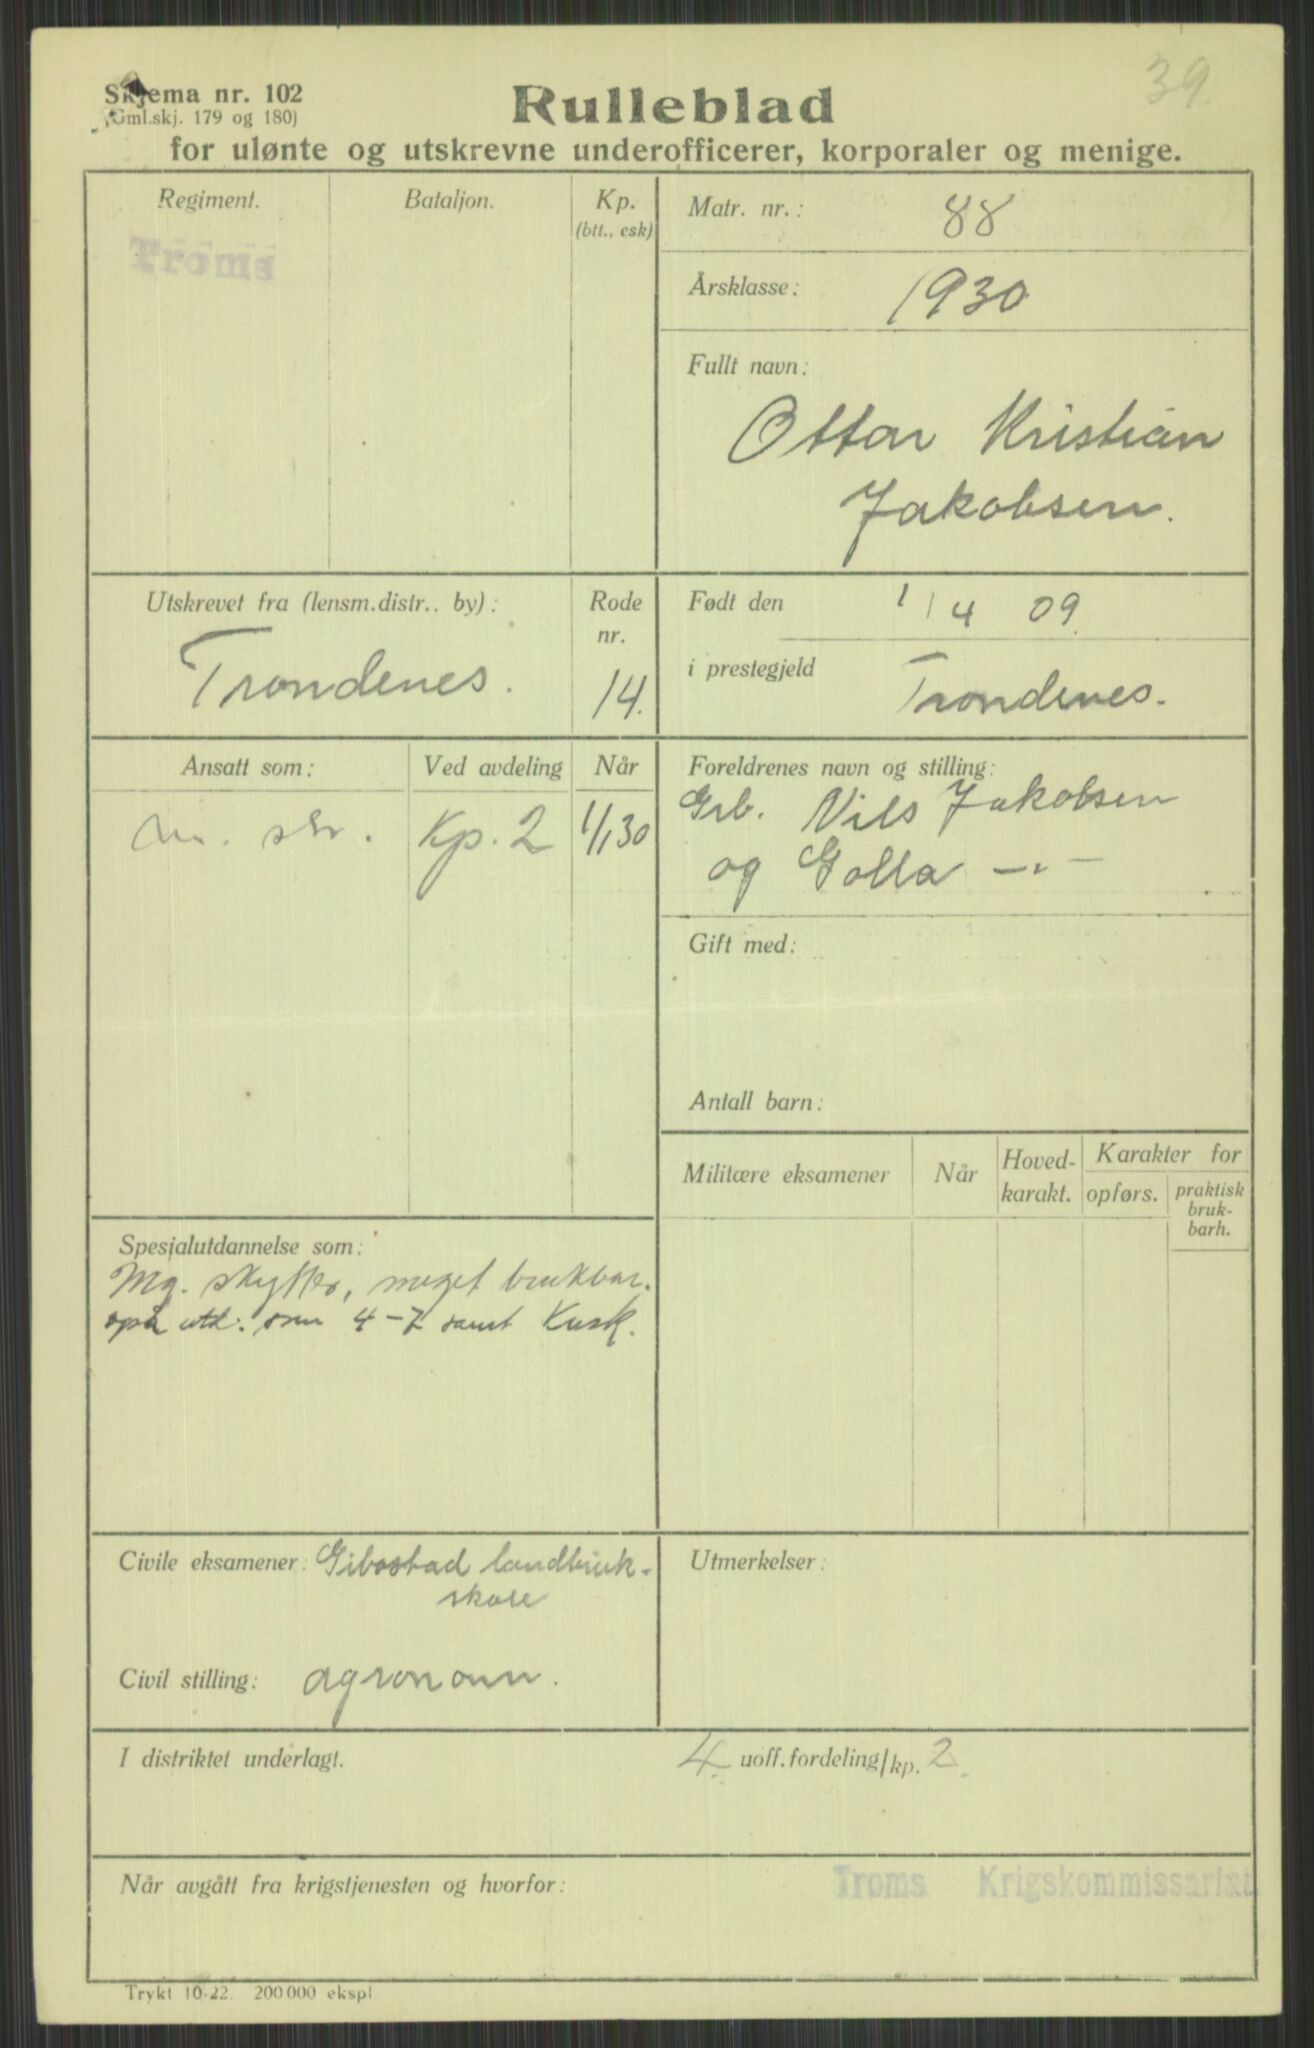 39
Skjema nr. 102
(Gml.skj. 179 og 180)
Rulleblad
for ulønte og utskrevne underofficerer, korporaler og menige.
Regiment.
Troms
Bataljon.
Kp.
(btt., esk)
Matr. nr.: 88
Årsklasse: 1930
Fullt navn:
Ottar Kristian
Jakobsen.
Utskrevet fra (lensm.distr., by):
Trondenes.
Rode
nr.
14.
Født den 1/4 09
i prestegjeld Trondenes.
Ansatt som:
Ved avdeling
Når
m. skr. Kp. 2 1/1 30
Foreldrenes navn og stilling:
Grb. Nils Jakobsen
og Golla —"—
Gift med:
Antall barn:
Militære eksamener
Når
Hoved-
karakt.
Karakter for
opførs.
praktisk
bruk-
barh.
Spesialutdannelse som:
Mg. skytter, meget brukbar.
også utd. som 4-7 samt Kusk.
Civile eksamener: Gibostad landbruk-
skole
Civil stilling: agronom.
Utmerkelser:
I distriktet underlagt.
4. uoff.fordeling/kp. 2.
Når avgått fra krigstjenesten og hvorfor:
Troms Krigskommissariat
Trykt 10-22. 200 000 ekspl